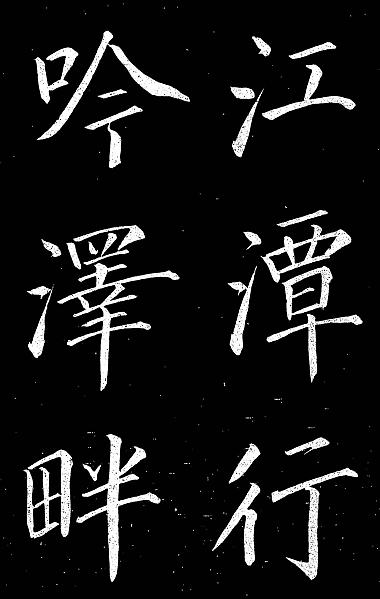 江潭行
吟澤畔